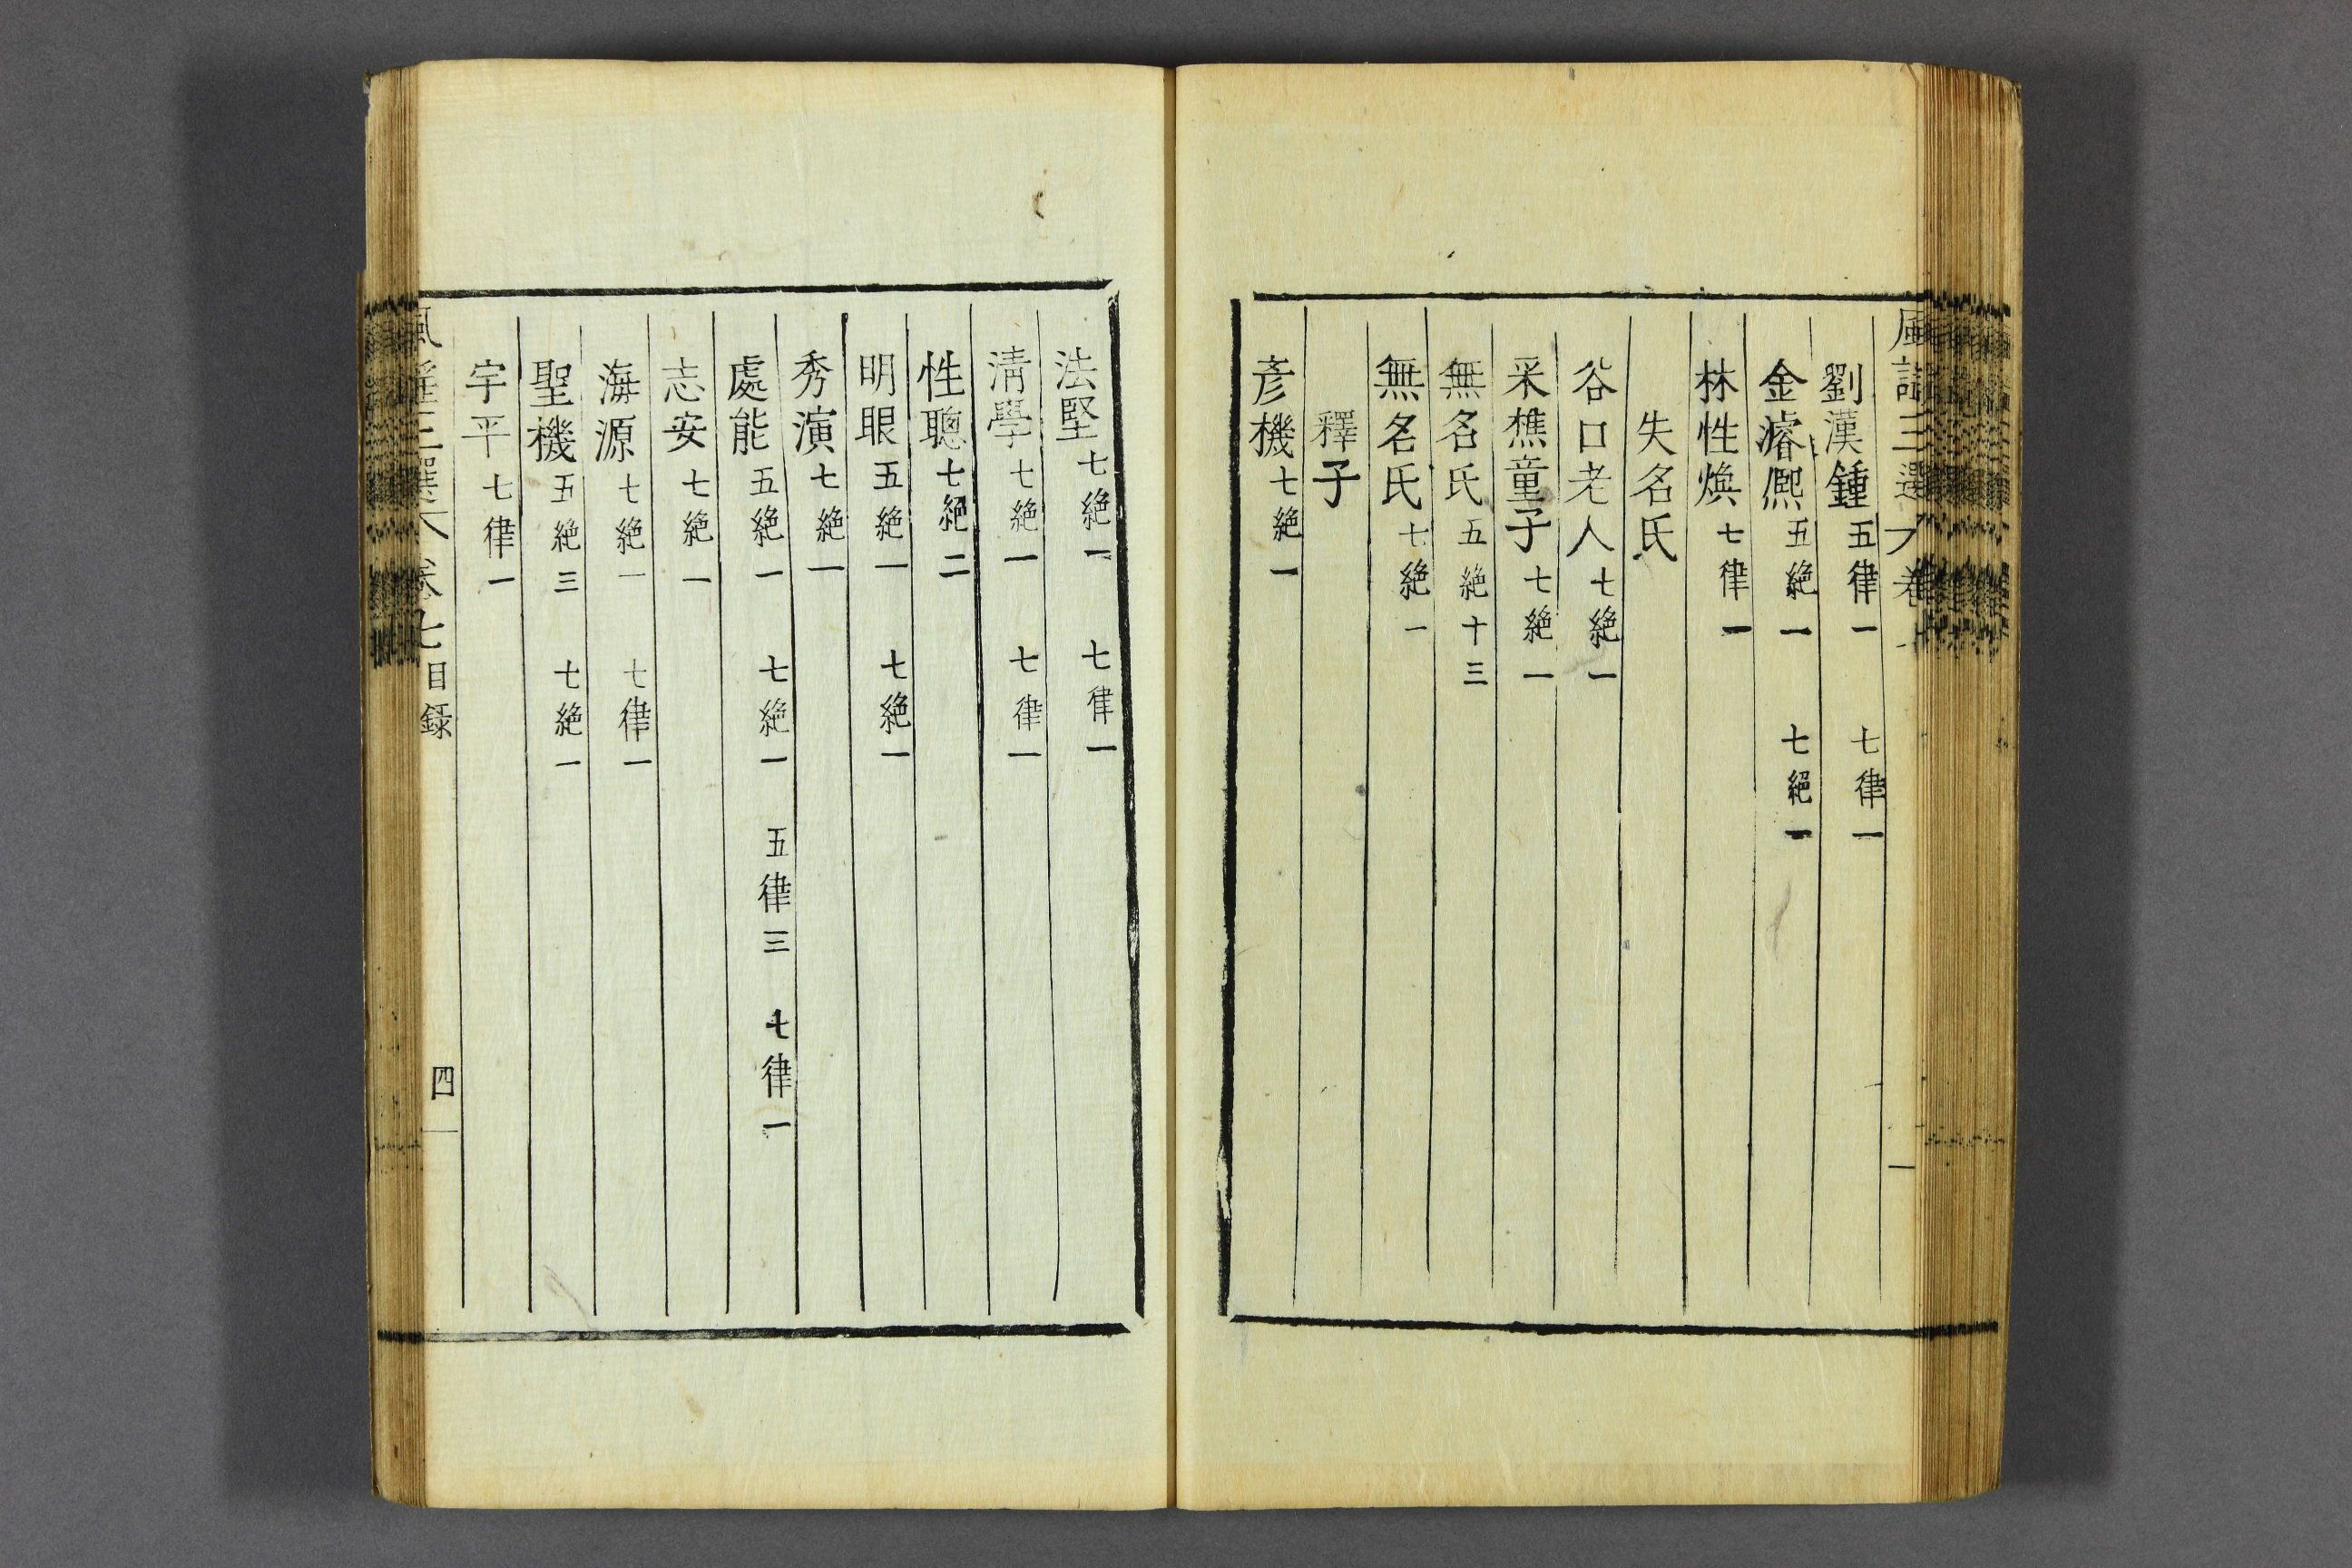 劉漢鍾 五律一 七律一
金濬熙 五絶一 七絶一
林性煥 七律一
失名氏
谷口老人 七絶一
采樵童子 七絶一
無名氏 五絶十三
無名氏 七絶一
釋子
彥機 七絶一
法堅 七絶一 七律一
淸學 七絶一 七律一
性聰 七絶二
明眼 五絶一 七絶一
秀演 七絶一
處能 五絶一 七絶一 五律三 七律一
志安 七絶一
海源 七絶一 七律一
聖機 五絶三 七絶一
宇平 七律一
風謠三選 卷七 目錄 四